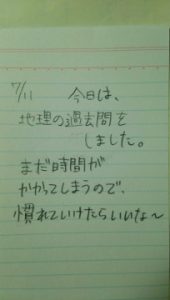 7/11 今日は、
地理の過去問を
しました。
まだ時間が
かかってしまうので、
慣れていけたらいいな〜